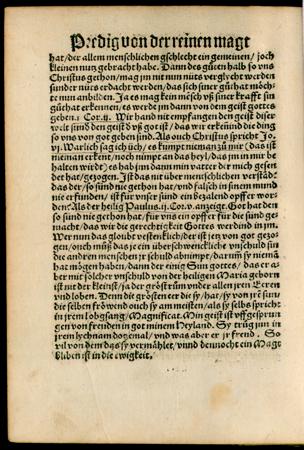 Predig von der reinen magt
hat/der allem menschlichen gschlecht ein gemeinen/ joch
kleinen nutz gebracht habe. Dann des gůten halb so vns
Christus gethon/mag jm nit nun nüts verglycht werden
sunder nüts erdacht werden/das sich siner gůthat möch⸗
te nun anbilden. Ja es mag kein mēsch vß siner krafft sin
gůthat erkennen/es werde jm dann von dem geist gottes
geben.1 Cor.ij. Wir hand nit empfangen den geist diser
welt sund den geist dʼ vß got ist/das wir erkennind die ding
so vns von got geben sind. Als ouch Christus spricht Jo.
vj. Warlich sag ich üch/es kumpt nieman zů mir (das ist
nieman erkent/noch nimpt an das heyl/das jm in mir be
halten wirdt) es hab jm dann min vatter der mich gesen
det hat/gezogen. Ist das nit über menschlichen verständ
das der/so sünd nie gethon hat/vnd falsch in sinem mund
nie erfunden/ist für vnser sünd ein bezalend opffer wor⸗
den? Als der heilig Paulus.ij.Cor.v. anzeigt. Got hat den
so sünd nie gethon hat/für vns ein opffer für die sünd ge⸗
macht/das wir die gerechtigkeit Gottes werdind in jm.
Wer nun das gloibt vestenklich/der ist jetz von got gezo
gen/ouch můß das je ein überschwenckliche vnschuld sin
die andren menschen jr schuld abnimpt/darum sy niemā
hat mögen haben/dann der einig Sun gottes/das er a⸗
ber mit solcher vnschuld von der heiligen Maria geborn
ist nit der kleinst/ja der gröst rům vnder allen jren Eeren
vnd loben. Denn die grösten eer die sy/hat/sy von jrē sun
die selben fröwend ouch sy am meisten/als sy selbs spricht
in jrem lobgsang/Magnificat. Min geist ist vffgesprun
gen von freuden in got minem Heyland. Sy trůg jun in
jrem lychnam dozemal/vnd was aber er jr frend. So
vil von dem das sy vermählet/vnnd dennocht ein Magt
bliben ist in die ewigkeit.